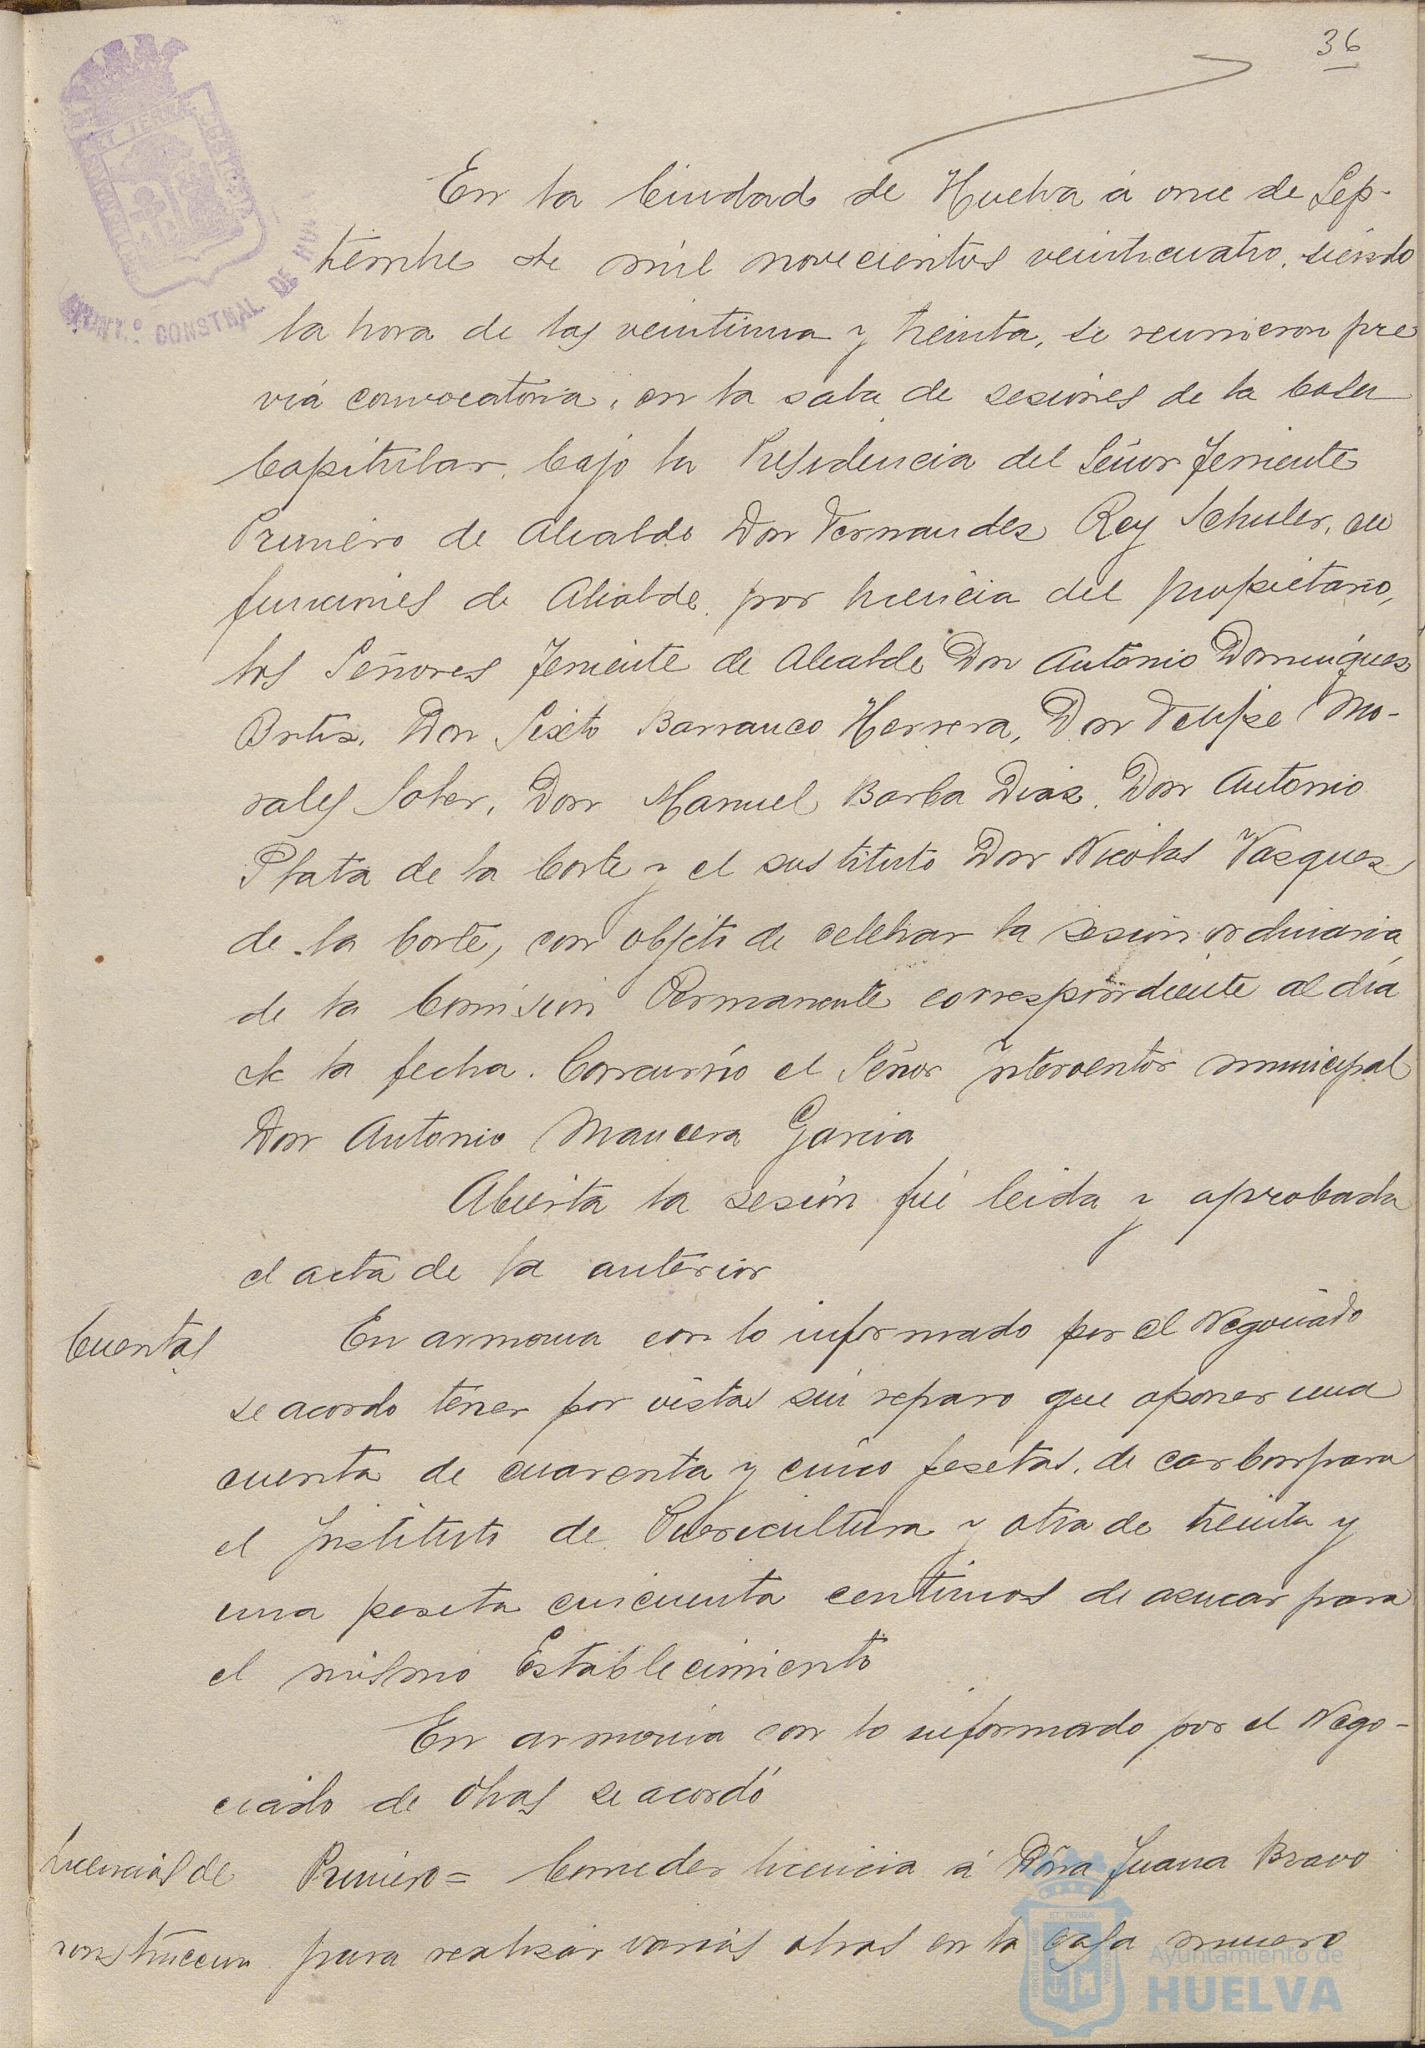 36
AYUNT.º CONSTNAL. DE HU
En la Ciudad de Huelva á once de Sep-
tiembre de mil novecientos veinticuatro, siendo
la hora de las veintiuna y treinta, se reunieron pre
via convocatoria, en la sala de sesiones de la Casa
Capitular, bajo la Presidencia del Señor Teniente
Primero de Alcalde Don Fernandez Rey Schuler, en
funciones de Alcalde, por licencia del propietario,
los Señores Teniente de Alcalde Don Antonio Dominguez
Ortiz, Don Sixto Barranco Herrera, Don Felipe Mo-
rales Soler, Don Manuel Barba Diaz, Don Antonio
Plata de la Corte y el sustituto Don Nicolas Vazquez
de la Corte, con objeto de celebrar la sesion ordinaria
de la Comision Permanente correspondiente al dia
de la fecha. Concurrio el Señor Interventor municipal
Don Antonio Mancera Garcia
Abierta la sesion fué leida y aprobada
el acta de la anterior
Cuentas
En armonia con lo informado por el Negociado
se acordo tener por vistas sin reparo que oponer una
cuenta de cuarenta y cinco pesetas, de carbon para
el Instituto de Puericultura y otra de treinta y
una peseta cincuenta centimos de azucar para
el mismo Establecimiento
En armonia con lo informado por el Nego-
ciado de Obras se acordó
Licencias de
construccion
Primero = Conceder licencia á Doña Juana Bravo
para realizar varias obras en la casa numero
Ayuntamiento de
HUELVA